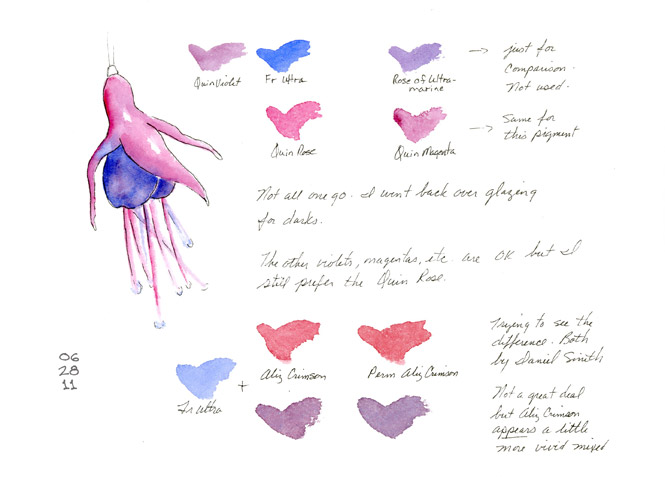 Quin Violet
Fr Ultra
Rose of Ultra-
marine
→ just for
comparison.
Not used.
Quin Rose
Quin Magenta
→ Same for
this pigment
Not all one go. I went back over glazing
for darks.
The other violets, magentas, etc. are OK but I
still prefer the Quin Rose.
06
28
11
Fr Ultra
+
Aliz Crimson
Perm Aliz Crimson
Trying to see the
difference. Both
by Daniel Smith
Not a great deal
but Aliz Crimson
appears a little
more vivid mixed